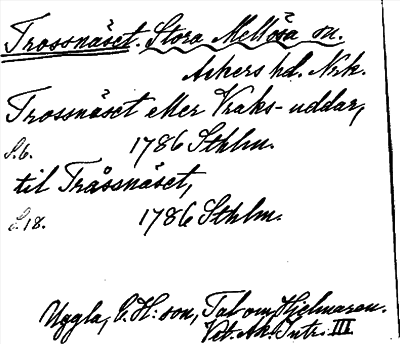 Trossnäset. Stora Mellösa sn.
Askers hd. Nrk.
Trossnäset eller Vraks-uddar,
S.6. 1786 Sthlm.
til Tråssnäset,
S.18. 1786 Sthlm.
Uggla, C.H:son, Tal om Hjelmaren.
Vet. Ak. Intr. III